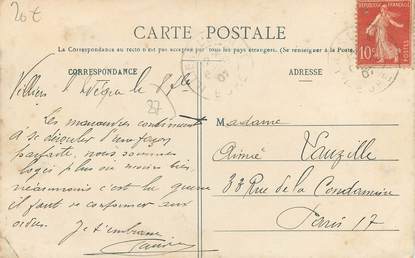 20€
CARTE POSTALE
La Correspondance au recto n'est pas acceptée par tous les pays étrangers. (Se renseigner à la Poste.)
CORRESPONDANCE
ADRESSE
REPUBLIQUE FRANÇAISE
10
POSTES
Villiers 8
27
Les manœuvres continuent
à se dérouler d'une façon
parfaite, nous sommes
logés plus ou moins bien,
néanmoins c'est la guerre
il faut se conformer aux
ordres. Je t'embrasse
Madame
Aimé Vauzille
33 Rue de la Condamine
Paris 17